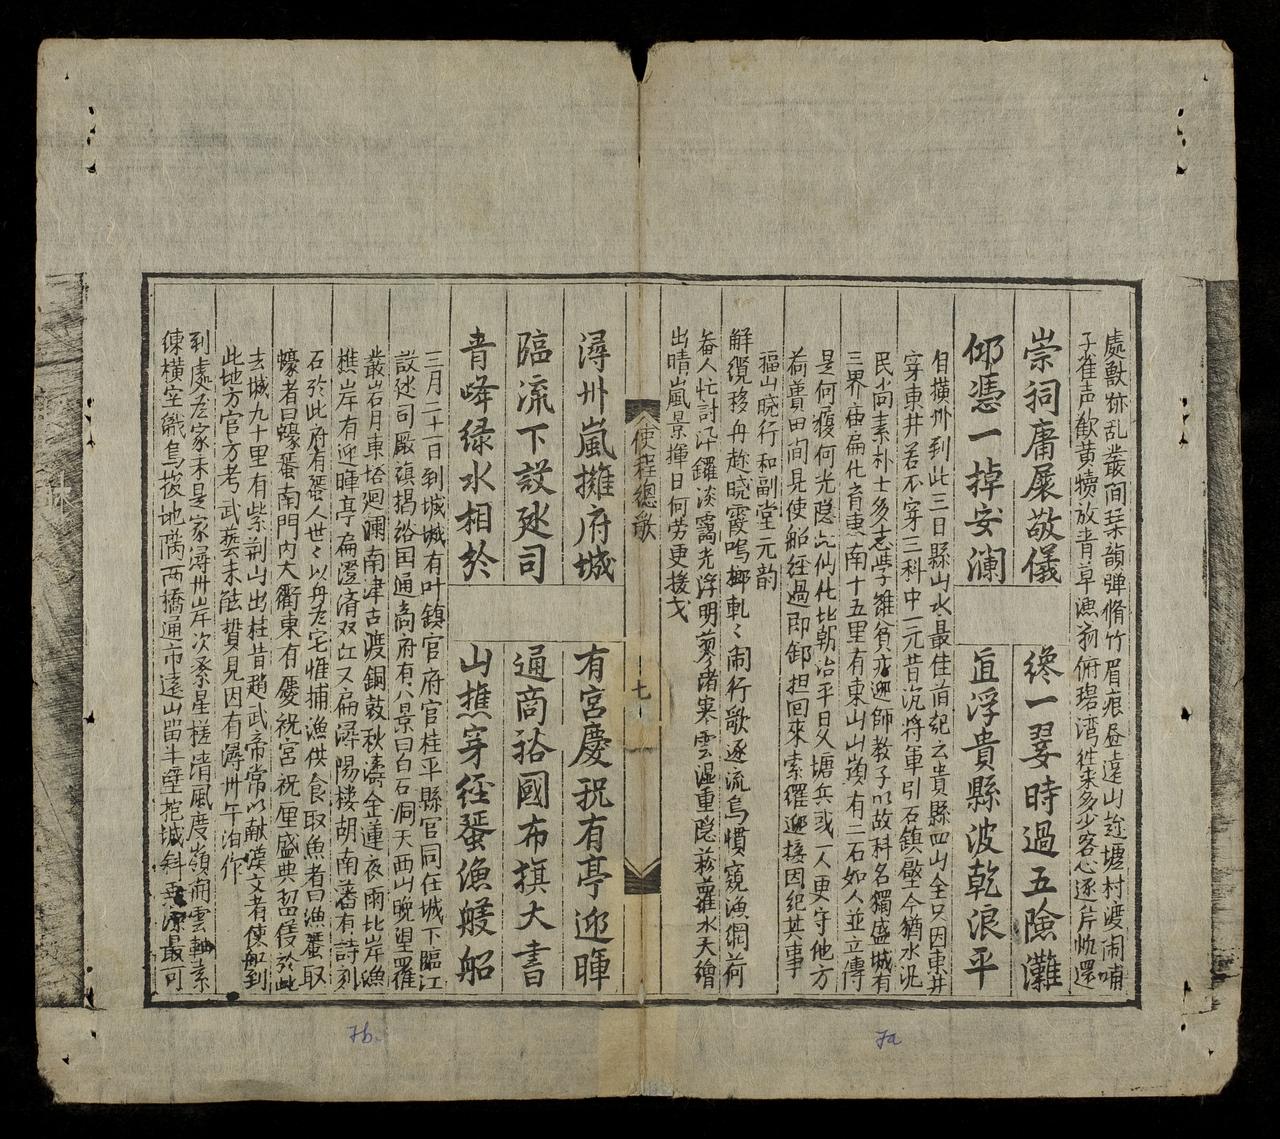 處獸跡乱叢间琹韻弹脩竹眉痕昼遠山趂墟村渡闹哺
子雀声歓黄犢放青草漁翁俯碧湾徃来多少客心逐片帆還
崇祠庸展敬儀 纔一霎時過五險灘
仰憑一掉安瀾 直浮貴縣波乾浪平
自横州到此三日縣山水最佳前記云貴縣四山全只因東井
穿東井若不穿三科中一元昔沉將軍引石鎮壓今猶水汎
民尚素朴士多志学雖貧亦迎師教子以故科名獨盛城有
三界庙扁化育東南十五里有東山山巔有二石如人並立傳
是何履何光隐此仙化比朝治平日久塘兵或一人更守他方
荷蕢田间見使船經過即卸担回來索纙迎接因紀其事
福山晓行和副堂元韵
解纜移舟趂晓霞鳴榔軋〻闹行歌逐流鳥慣窺漁網荷
畚人忙討汛鑼淡靄光浮明蓼渚寒雲湿重隐菘蘿水天繪
出晴嵐景揮日何劳更援戈
使程總歌
七
潯州嵐擁府城 有宮慶祝有亭迎暉
臨流下設𨒂司 通商裕國布旗大書
青峰緑水相於 山樵穿徑蜑漁艤船
三月二十一日到城城有叶鎮官府官桂平縣官同住城下臨江
設𨒂司廠旗揭裕国通商府有八景曰白石洞天西山晚望羅
叢岩月東塔廻澜南津古渡銅鼓秋濤金蓮夜雨北岸漁
樵岸有迎暉亭扁澄清双江又扁潯陽楼胡南藩有詩刻
石於此府有蜑人世〻以舟为宅惟捕漁供食取魚者曰漁蜑取
蠔者曰蠔蜑南門内大衢東有慶祝宮祝厘盛典詔護於此
去城九十里有紫荊山出桂昔趙武帝常以献漢文者使船到
此地方官方考武藝未能贄見因有潯州午泊作
到處为家未是家潯州岸次泰星槎清風度嶺南雲軸素
練横空鐵鳥拔地隅两橋通市遠山留半壁挖城斜 源最可